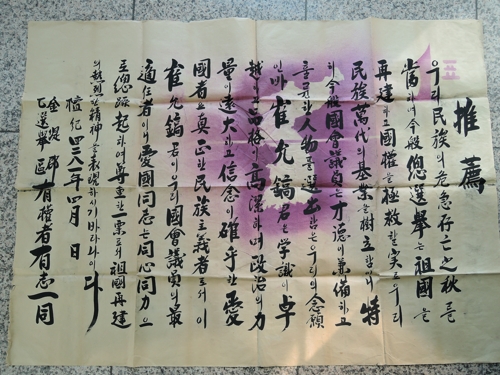 推薦
우리 民族의 危急存亡之秋를
當하야 今般 總選擧는 祖國을
再建하고 國權을 우리
民族萬代의 基業을 樹立할지니 特
히 今般 國會議員은 才德이 兼備하고
人物을 選出함은 우리의 念願
인바 崔允鎬 君은 學識이 卓
越하고 品格이 高深하며 政治의 力
量이 遠大하고 信念이 確乎한 愛
國者로 眞正한 民族主義者로서 이
崔允鎬 君이 우리 國會議員의 最
適任者이니 愛國同志는 同心同力으
로 總蹶起하여 尊重한 一票로서 祖國再建
의 熱烈한 精神을 表現하시기 바라나이다
檀紀四二八一年四月 日
金堤郡
乙選擧區 有權者有志一同